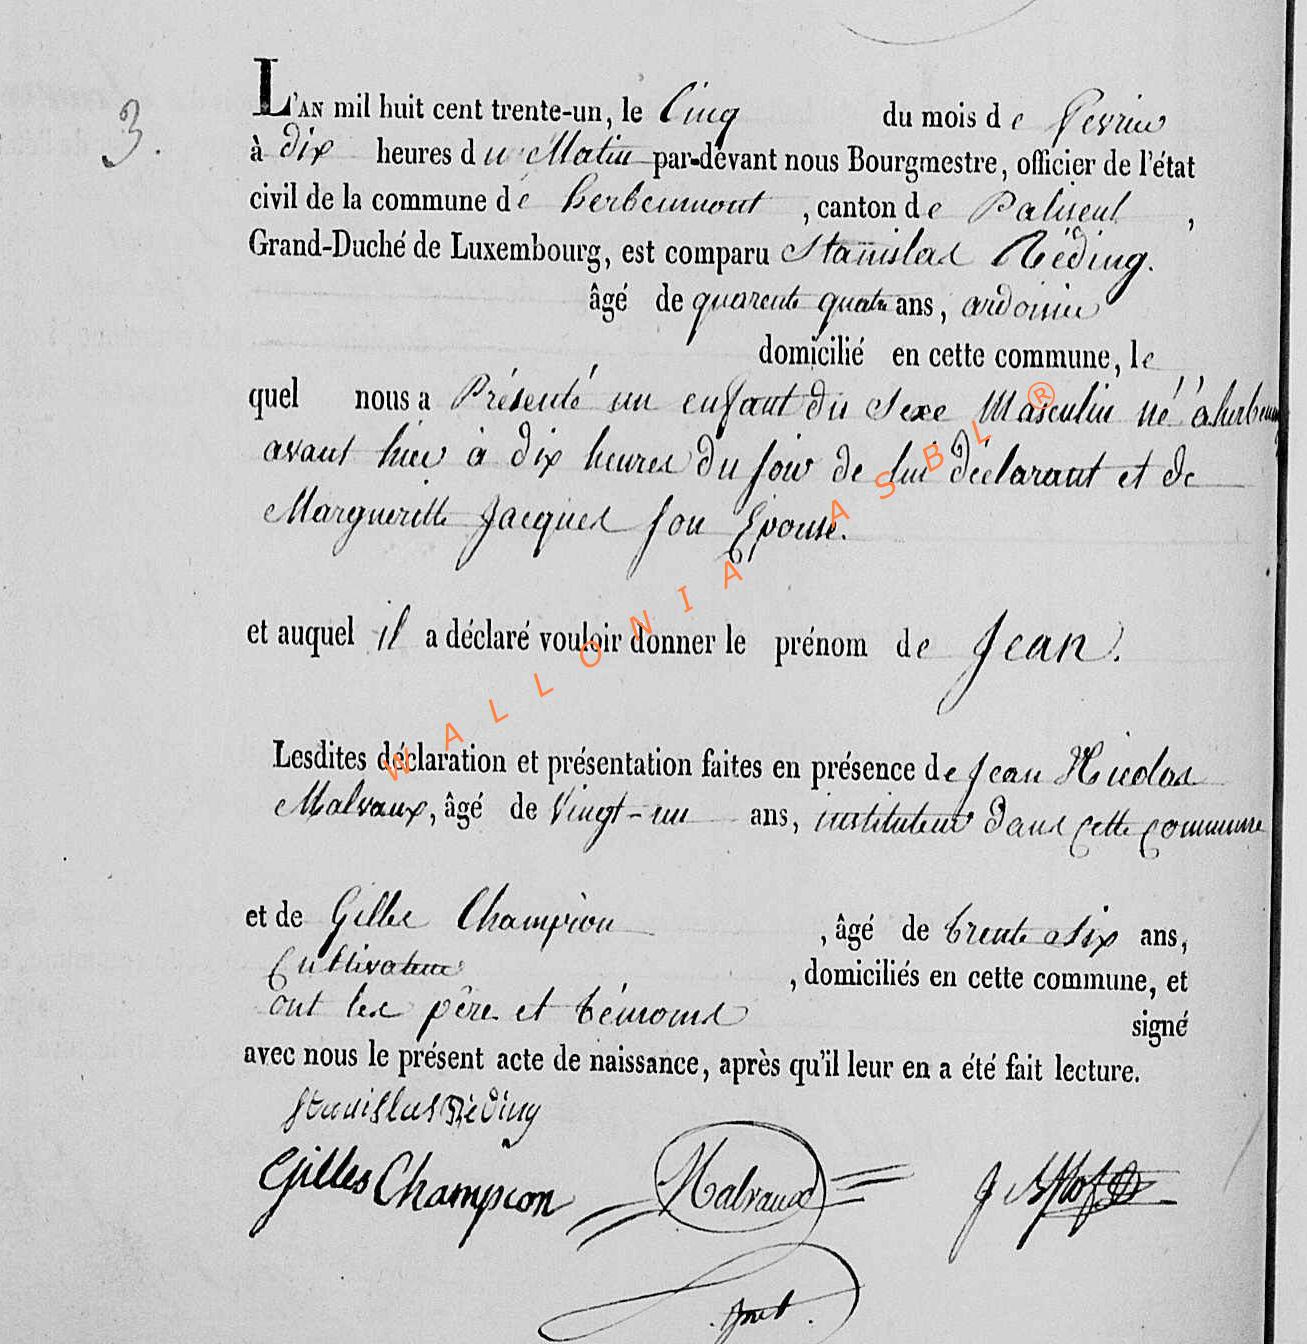 3.
L'AN mil huit cent trente-un, le Cinq du mois de fevrier
à dix heures du Matin par-devant nous Bourgmestre, officier de l'état
civil de la commune de herbeumont, canton de Paliseul,
Grand-Duché de Luxembourg, est comparu Stanislas Réding.
âgé de quarente quatre ans, ardoisier
domicilié en cette commune, le
quel nous a Présenté un enfant du Sexe Masculin né à herbeum
avant hier à dix heures du soir de lui déclarant et de
Margueritte Jacques son Epouse.
et auquel il a déclaré vouloir donner le prénom de Jean.
Lesdites déclaration et présentation faites en présence de Jean Nicolas
Malvaux, âgé de Vingt-un ans, instituteur dans cette commune
et de Gilles Champion, âgé de trente six ans,
Cultivateur, domiciliés en cette commune, et
ont les père et témoins signé
avec nous le présent acte de naissance, après qu'il leur en a été fait lecture.
Stanislas Réding
Gilles Champion Malvaux
WALLONIA ASBL ®